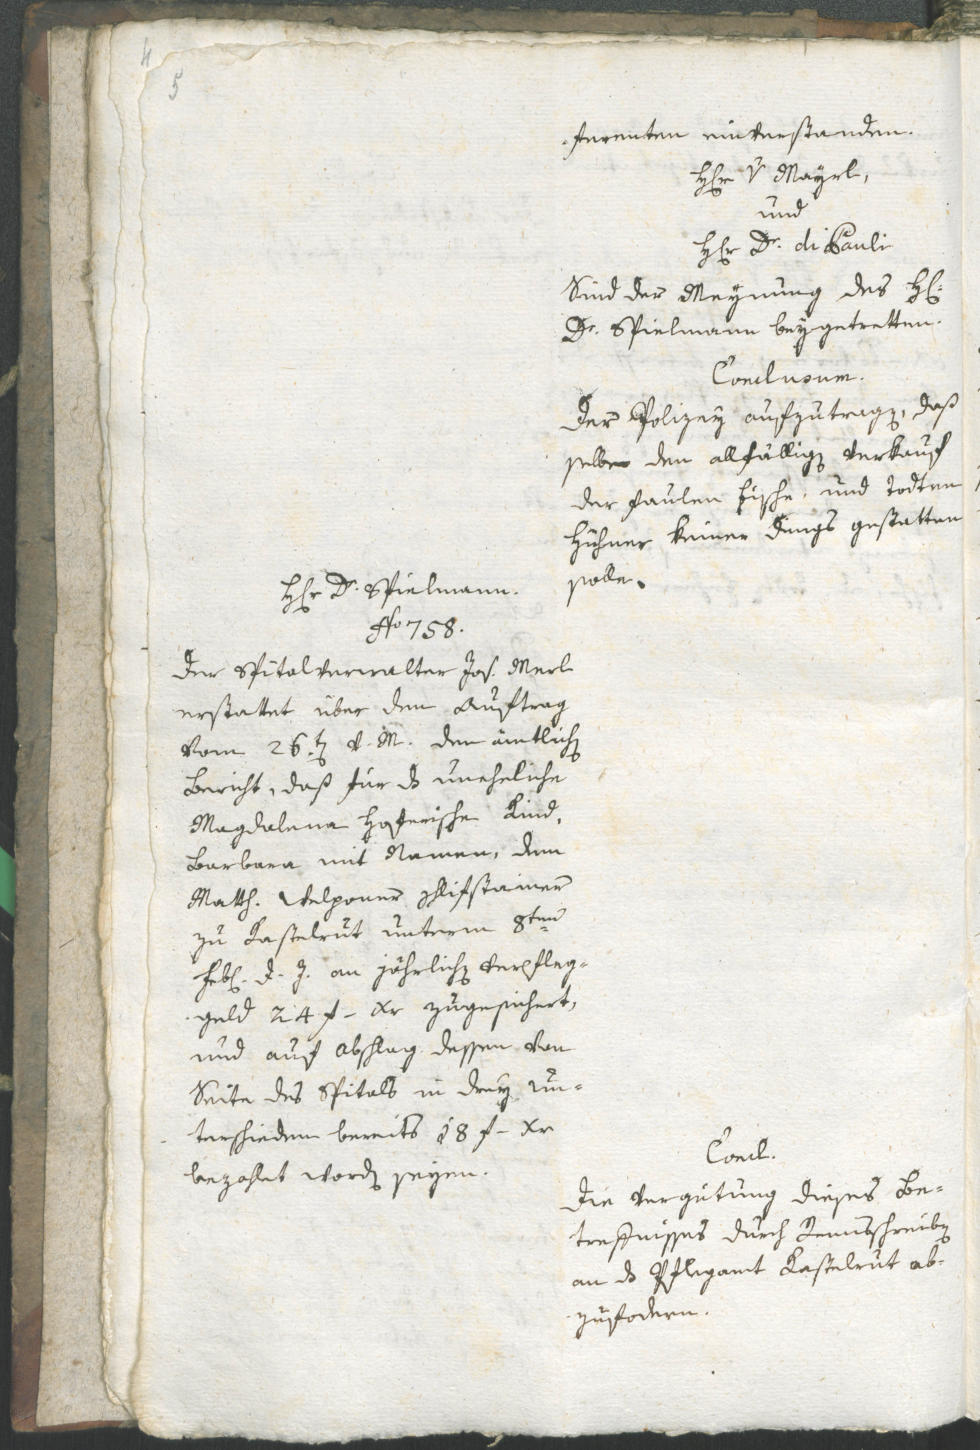 4
5
-ferenten einverstanden.
Hr v Mayrl,
und
Hr Dr. di Pauli
Sind der Meÿnung des H:
Dr. Spielmann beÿgetretten.
Conclusum.
Der Polizeÿ aufzutragen, daß
selbe den allfällig Verkauf
der faulen Fische, und todten
Hühner keiner Dings gestatten
solle.
Hr Dr. Spielmann.
No 758.
Der Spitalverwalter Jos. Merl
erstattet über den Auftrag
vom 26.t v. M. den ämtlich
Bericht, daß für das uneheliche
Magdalena Hoferische Kind,
Barbara mit Namen, dem
Math. Velponer
zu Kastelrut unterm 8ten
Feb. d. J. an jährlich Verpfleg-
geld 24 f - xr zugesichert,
und auf Abschlag dessen von
Seite des Spitals in dreÿ un-
terschiedenen bereits 18 f - xr
bezahlt word seÿen.
Concl.
Die Vergütung dieses Be-
treffnisses durch
an das Pflegamt Kastelrut ab-
zufodern.